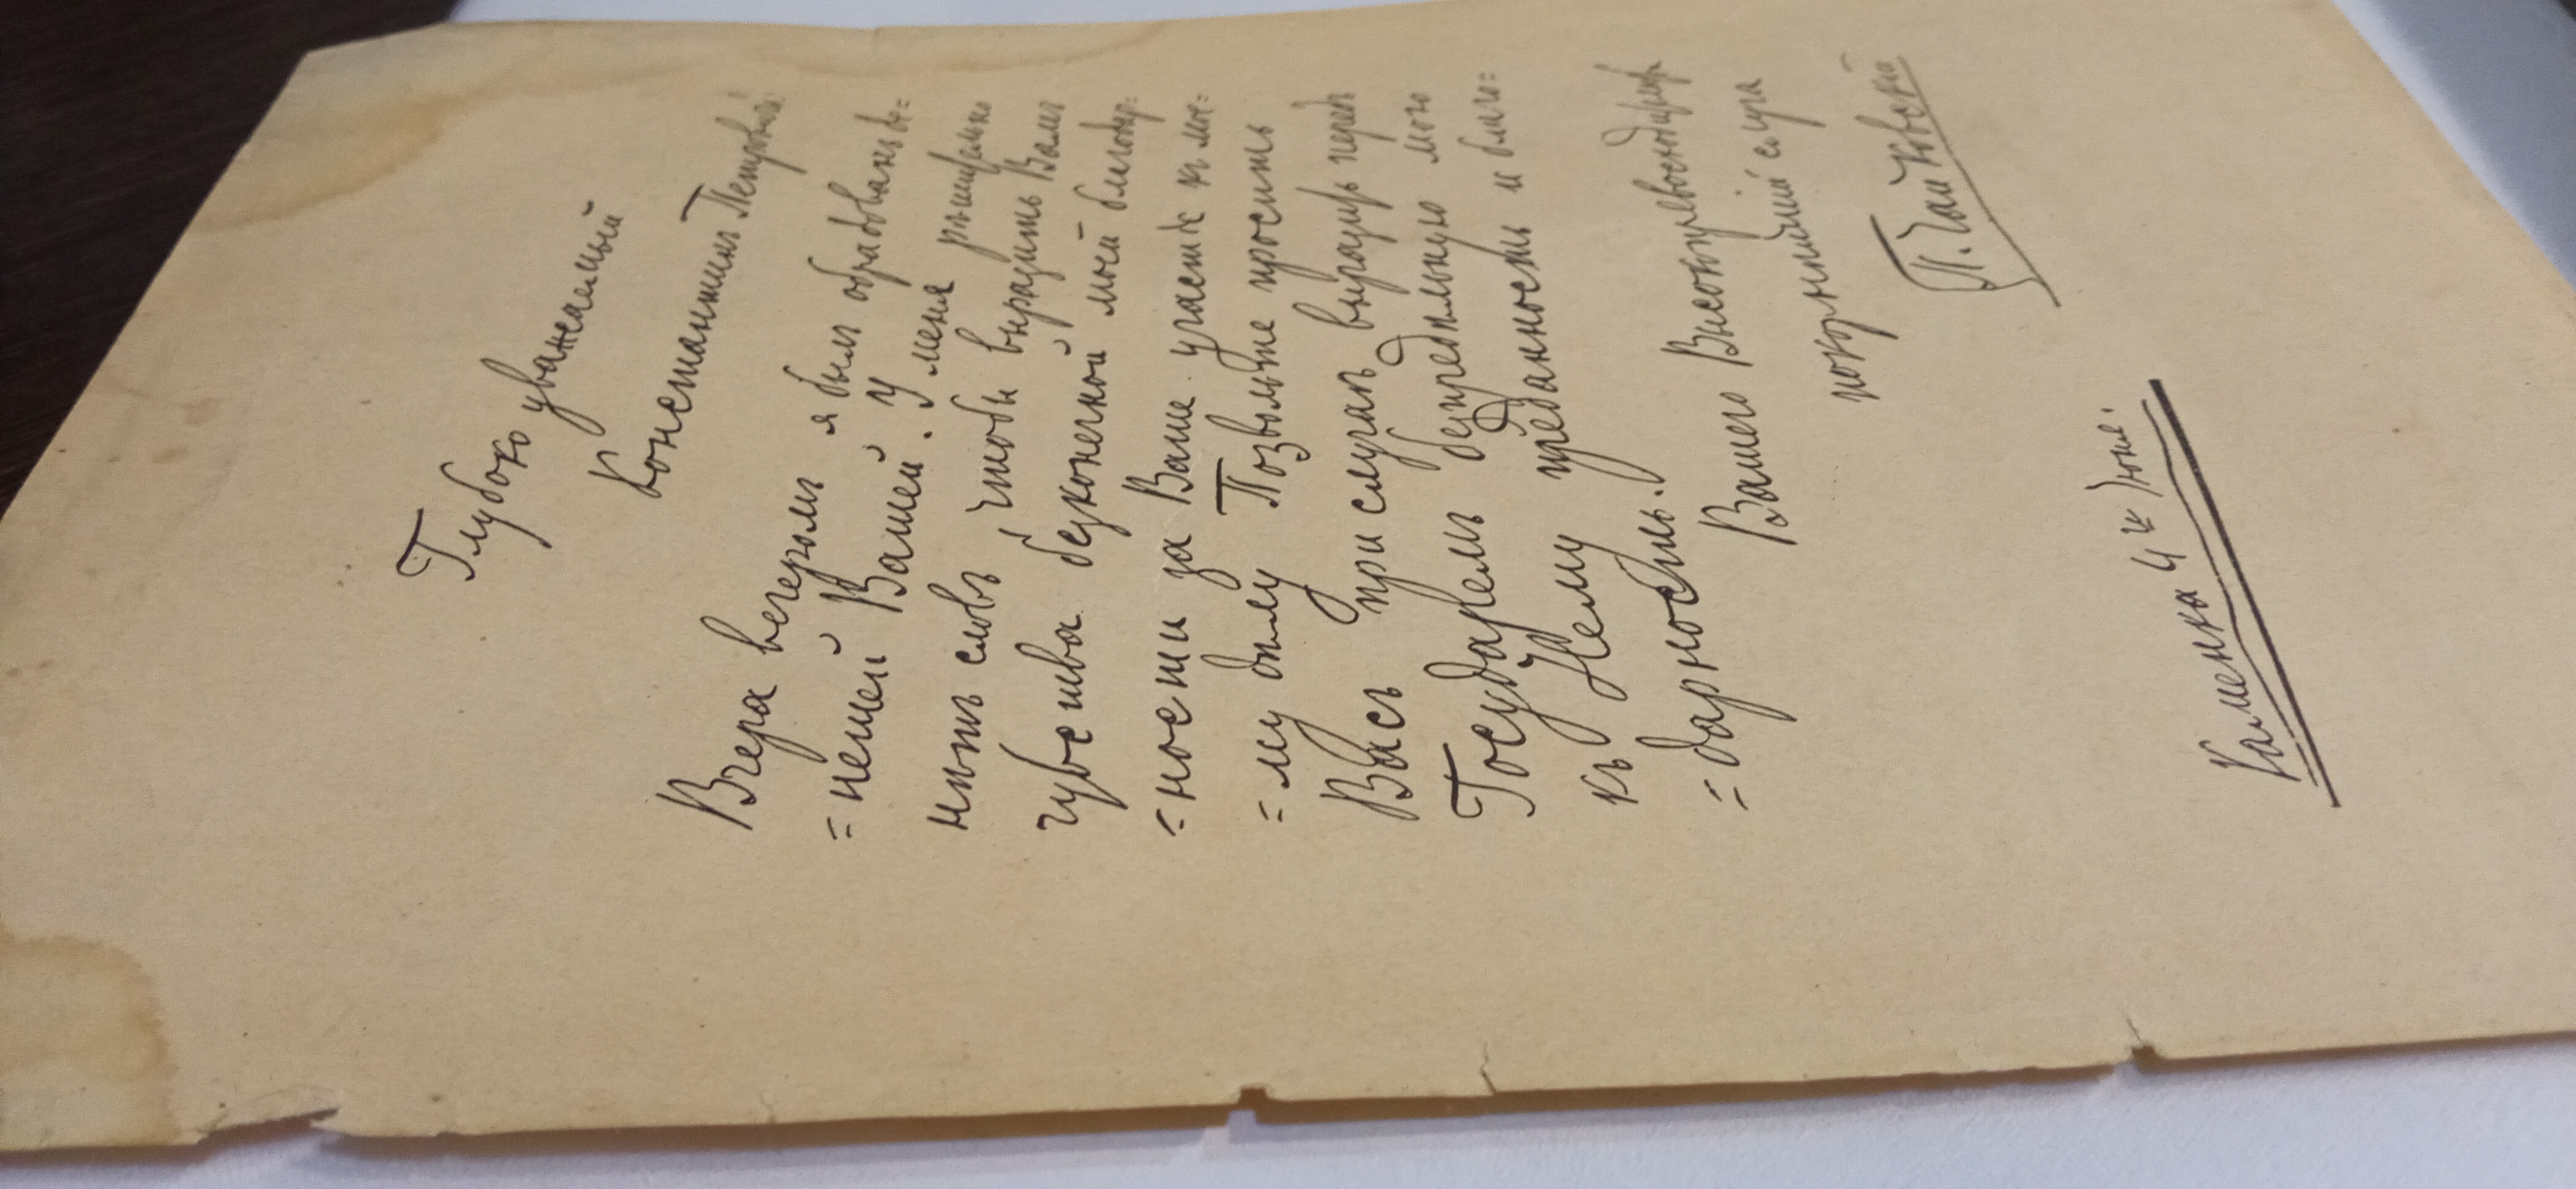 Глубоко уважаемый
Константинъ Петровичъ!
Вчера вечеромъ я былъ обрадованъ де=
=пешей Вашей. У меня рѣшительно
нѣтъ словъ чтобы выразить Вамъ
чувства безконечной моей благодар=
=ности за Ваше участіе къ мое=
=му дѣлу. Позвольте просить
Васъ при случаѣ выразить передъ
Государемъ безпредѣльную мою
къ Нему преданность и благо=
=дарность.
Вашего Высокопревосходительства
покорнѣйшій слуга
П. Чайковскій
Каменка 4го Іюня.